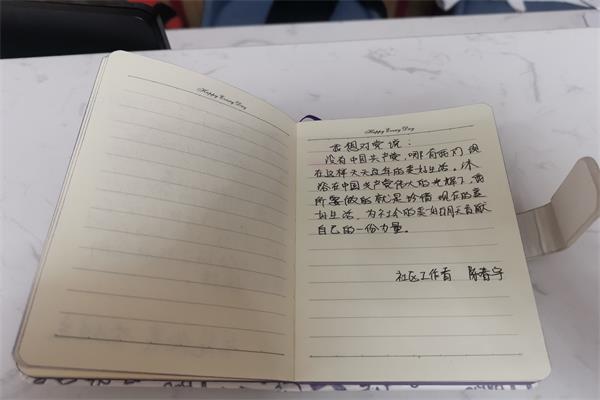 Happy Every Day
Happy Every Day
我想对党说：
没有中国共产党，哪有我们现
在这样天天过年的美好生活。沐
浴在中国共产党伟大的光辉下，我
所要做的就是珍惜现在的美
好生活，为社会的美好明天贡献
自己的一份力量。
社区工作者 陈春宇